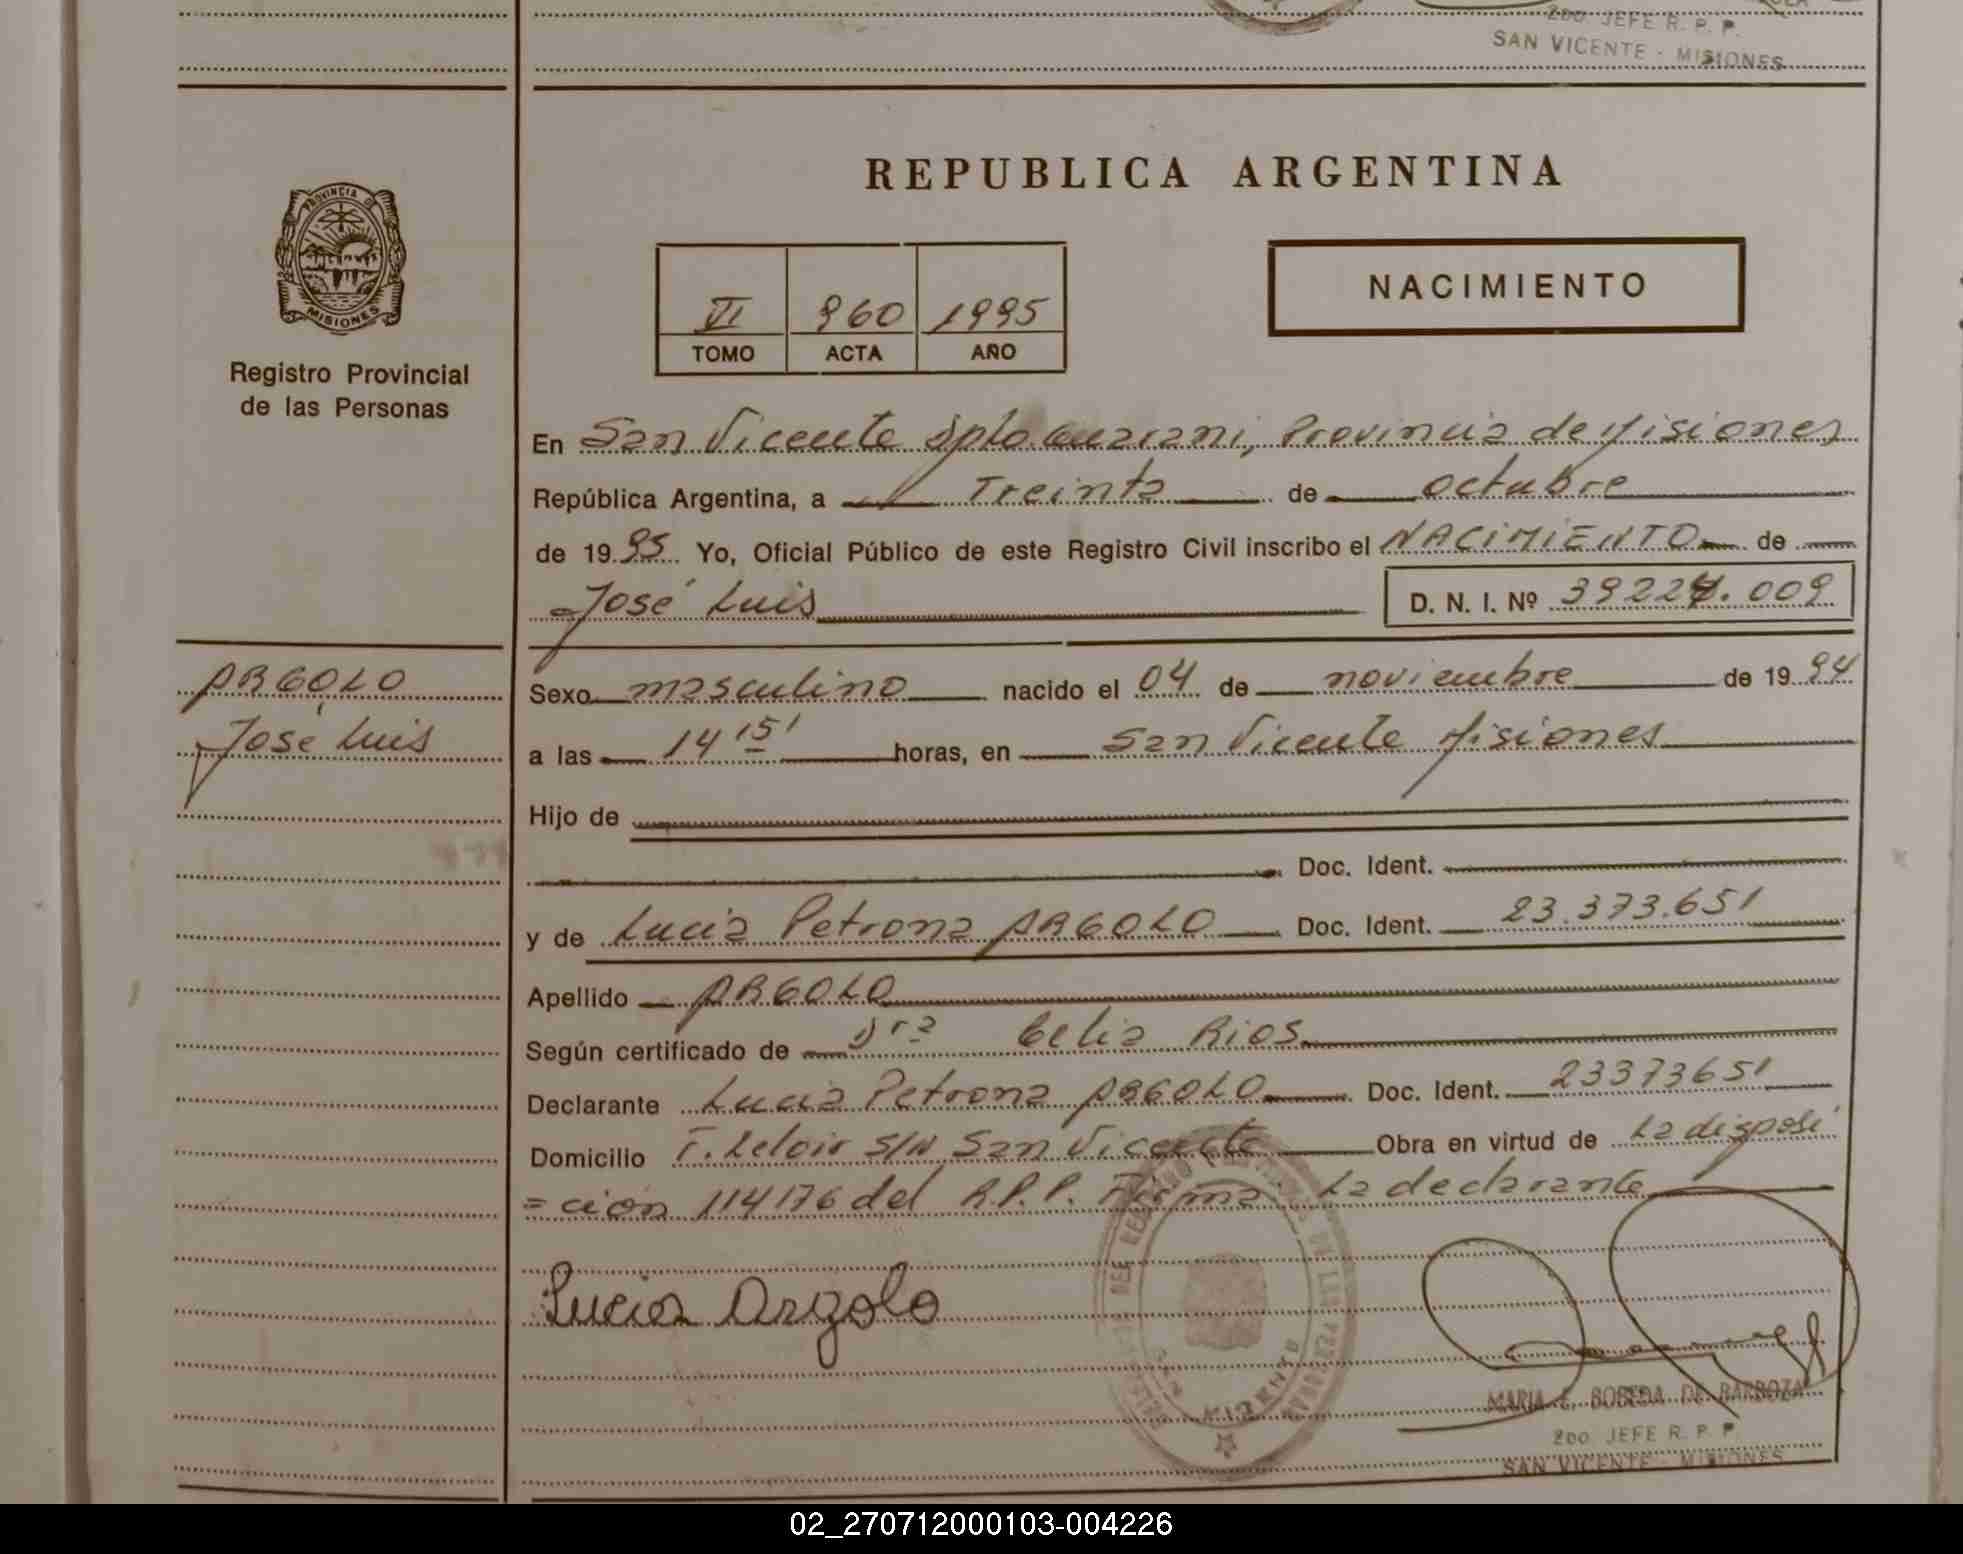 2do JEFE R. P. P.
SAN VICENTE - MISIONES
REPUBLICA ARGENTINA
PROVINCIA DE
MISIONES
Registro Provincial
de las Personas
NACIMIENTO
VI 960 1995
TOMO ACTA AÑO
En San Vicente Dpto. Guarani, Provincia de Misiones
República Argentina, a Treinta de octubre
de 1995 Yo, Oficial Público de este Registro Civil inscribo el NACIMIENTO de
José Luis D. N. I. Nº 39.224.009
ARGOLO
José Luis
Sexo masculino nacido el 04 de noviembre de 1994
a las 14 15' horas, en San Vicente Misiones
Hijo de
Doc. Ident.
y de Lucia Petrona ARGOLO Doc. Ident. 23.373.651
Apellido ARGOLO
Según certificado de Dra Celia Rios
Declarante Lucia Petrona ARGOLO Doc. Ident. 23373651
Domicilio F. Leloir S/N San Vicente Obra en virtud de La disposi
=ción 114176 del R.P.P. Firma: La declarante
Lucia Argolo
MARIA E. BOBEDA DE BARBOZA
2do JEFE R. P. P.
SAN VICENTE - MISIONES
02_270712000103-004226